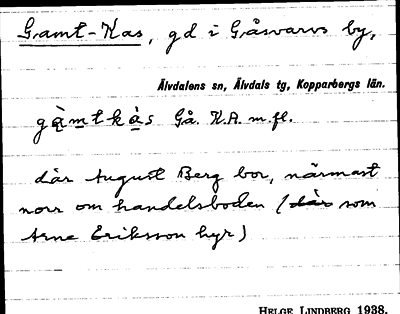 Gamt-Kas, gd i Gåsvarvs by,
Älvdalens sn, Älvdals tg, Kopparbergs län.
gàmtkàs Gå. K.A. m.fl.
där August Berg bor, närmast
norr om handelsboden (där som
Arne Eriksson hyr)
HELGE LINDBERG 1938.